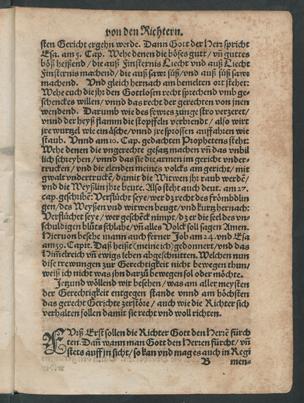 von den Richtern.
sten Gericht ergehn werde. Dann Gott der Herr spricht
Esa. am 5. Cap. Wehe denen die böses gutt / vñ guttes
böß heißend / die auß Finsternis Liecht vnd auß Liecht
Finsternis machend / die auß sawr süß / vnd auß süß sawr
machend. Vnd gleich hernach am benelten ort stehet:
Wehe euch die jhr den Gottlosen recht sprechend vmb ge-
schenckes willen / vnnd das recht der gerechten von jnen
wendend. Darumb wie des fewres zunge stro verzeret /
vnnd der heyß flamm die stopfflen verbrendt / also wirt
jre wurtzel wie ein äsche / vnnd jre sprossen auffahren wie
staub. Vnnd am 10. Cap. gedachten Prophetens stehet:
Wehe denen die vngerechte gesatz machen vñ das vnbil
lich schreyben / vnnd das sie die armen im gericht vnder-
trucken / vnd die elenden meines volcks am gericht / mit
gwalt vndertruckẽ / damit die Witwen jhr raub werdẽ /
vnd die Weyßlin jhre beute. Also steht auch deut. am 27.
cap. geschribẽ: Verflucht seye / wer dz recht des frömbdlin
gen / des Weysen vnd witwen beugt / vnd kurtz hernach:
Verflücht seye / wer geschenck nimpt / dz er die seel des vn-
schuldigen blüts schlahe / vñ alles Volck soll sagen Amen.
Hieruon besehe man auch ferner Job am 24. vnd Esa
am 59. Capit. Daß heißt (meine ich) gedonnert / vnd das
Himelreich vñ ewigs leben abgeschnitten. Welchen nun
dise trewungen zur Gerechtigkeit nicht bewegen thun /
weiß ich nicht was jhn darzů bewegen sol oder möchte.
Jetzund wöllend wir besehen / was am aller meysten
der Gerechtigkeit entgegen stande vnnd am höchsten
das gerecht Gerichte zerstöre / auch wie die Richter sich
verhalten sollen damit sie recht vnd woll richten.
Auß Erst sollen die Richter Gott den Herrẽ fürch
ten. Dañ wann man Gott den Herren fürcht / vñ
stets auff jn sicht / so kan vnd mag es auch in Regi
B
men-